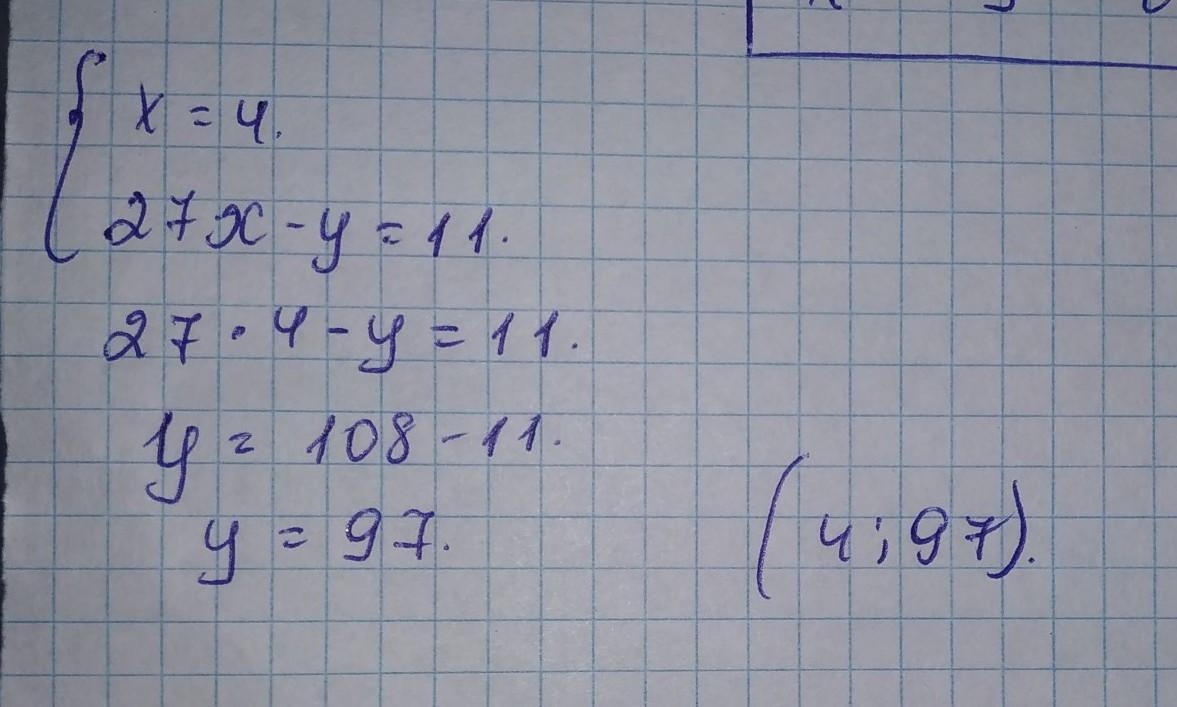 x = 4.
27x - y = 11.
27 · 4 - y = 11.
y = 108 - 11.
y = 97.
(4; 97).